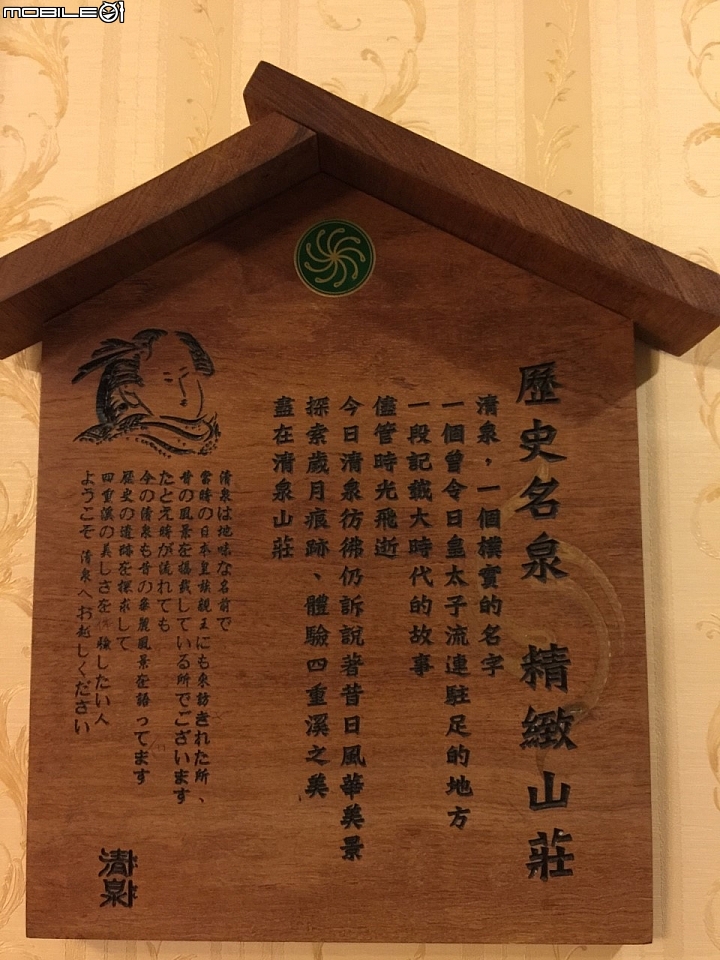 MOBILE01
歷史名泉 精緻山莊
清泉，一個樸實的名字
一個曾令日皇太子流連駐足的地方
一段記載大時代的故事
儘管時光飛逝
今日清泉彷彿仍訴說著昔日風華美景
探索歲月痕跡、體驗四重溪之美
盡在清泉山莊
清泉は地味な名前で
當時の日本皇族親王にも来訪された所、
昔の風景を搭載している所でございます
たとえ時が流れても
今の清泉も昔の華麗風景を語ってます
歴史の遺跡を探求して
四重溪の美しさを 驗したい人
ようこそ 清泉へお越しください
清泉